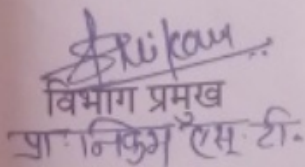 विभाग प्रमुख
प्रा. निकुम एस. टी.